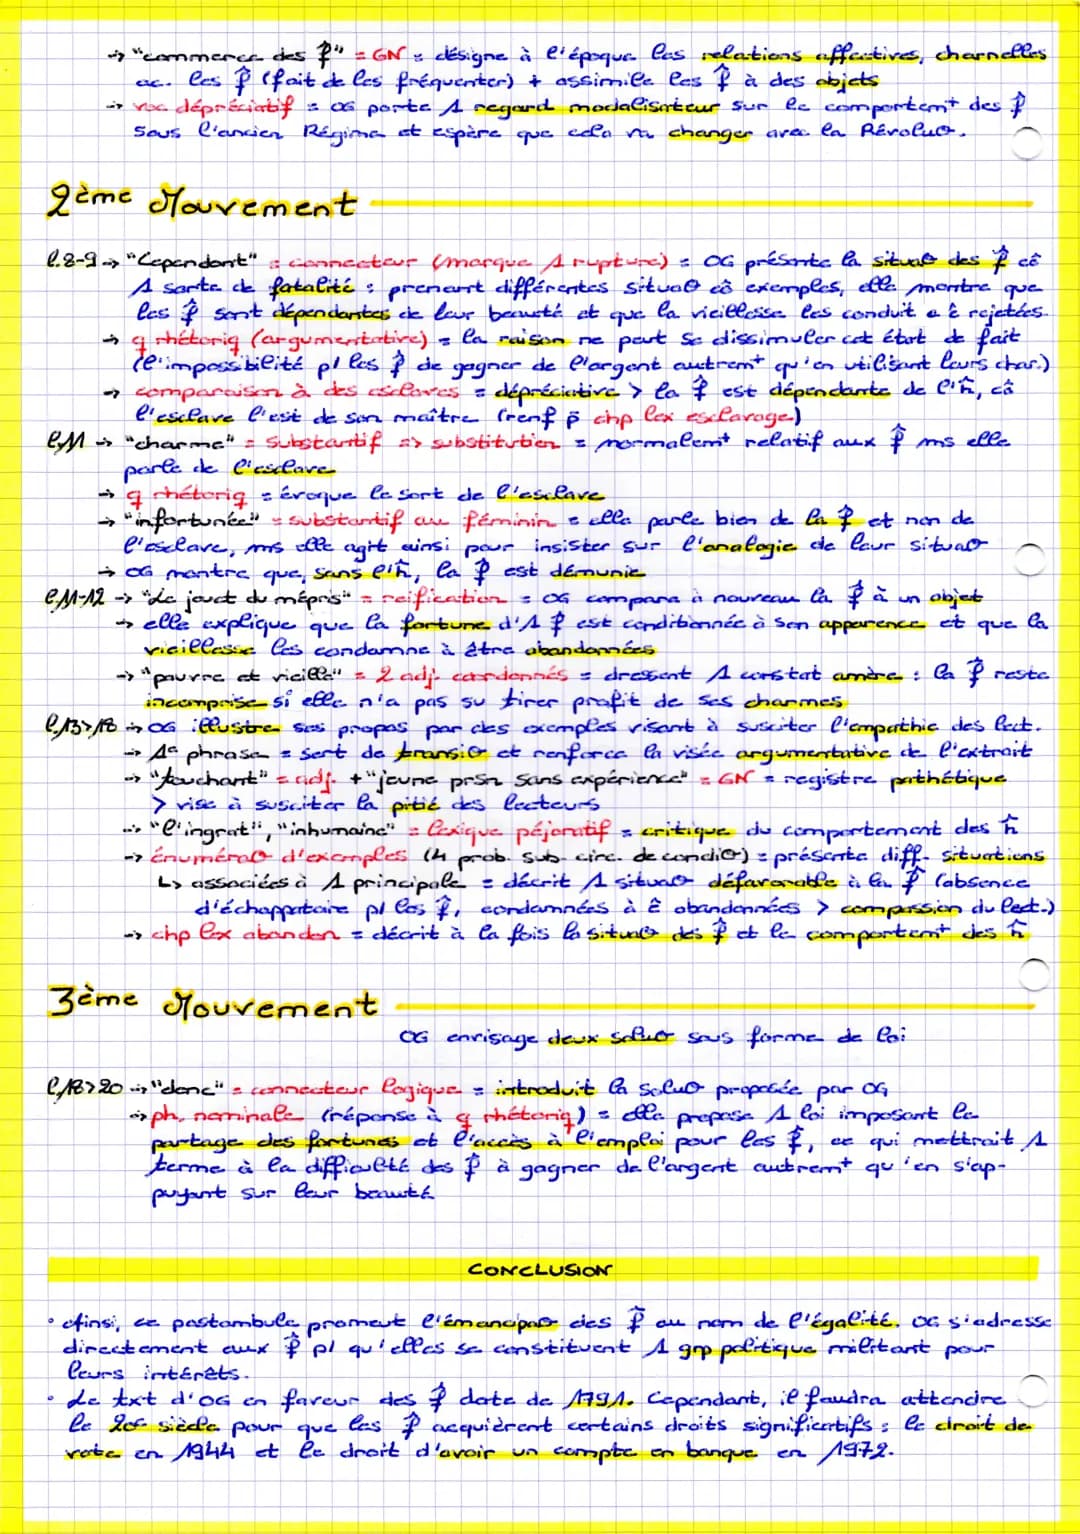 → "commerce des f̂" = GN = désigne à l'époque les relations affectives, charnelles
ac. les f̂ (fait de les fréquenter) + assimile les f̂ à des objets
→ voc dépréciatif = OG porte 1 regard modalisateur sur le comportemt des f̂
sous l'ancien Régime et espère que cela va changer avec la Révoluo.
2ème Mouvement
l.8-9 → "Cependant" = connecteur (marque 1 rupture) = OG présente la situao des f̂ cô
1 sorte de fatalité : prenant différentes situao cô exemples, elle montre que
les f̂ sont dépendantes de leur beauté et que la vieillesse les conduit à ê rejetées
→ q rhétoriq (argumentative) = la raison ne peut se dissimuler cet état de fait
(l'impossibilité pl les f̂ de gagner de l'argent autremt qu'en utilisant leurs char.)
→ comparaison à des esclaves = dépréciative > la f̂ est dépendante de l'ĥ, cô
l'esclave l'est de son maître (renf p̄ chp lex esclavage)
l.11 → "charme" = substantif => substitution = normalemt relatif aux f̂ ms elle
parle de l'esclave
→ q rhétoriq = évoque le sort de l'esclave
→ "infortunée" = substantif au féminin = elle parle bien de la f̂ et non de
l'esclave, ms elle agit ainsi pour insister sur l'analogie de leur situao
→ OG montre que, sans l'ĥ, la f̂ est démunie
l.11-12 → "Le jouet du mépris" = reification = OG compare à nouveau la f̂ à un objet
→ elle explique que la fortune d'1 f̂ est conditionnée à son apparence et que la
vieillesse les condamne à être abandonnées
→ "pauvre et vieille" = 2 adj. coordonnés = dressent 1 constat amère : la f̂ reste
incomprise si elle n'a pas su tirer profit de ses charmes
l.13>18 → OG illustre ses propos par des exemples visant à susciter l'empathie des lect.
→ 1e phrase = sert de transio et renforce la visée argumentative de l'extrait
→ "touchant" = adj. + "jeune prsn sans expérience" = GN = registre pathétique
> vise à susciter la pitié des lecteurs
→ "l'ingrat", "inhumaine" = lexique péjoratif = critique du comportement des ĥ
→ énumérao d'exemples (4 prob. sub. circ. de condio) = présente diff. situations
↳ associées à 1 principale = décrit 1 situao défavorable à la f̂ (absence
d'échappatoire pl les f̂, condamnées à Ê abandonnées > compassion du lect.)
→ chp lex abandon = décrit à la fois la situao des f̂ et le comportemt des ĥ
3ème Mouvement
OG envisage deux soluo sous forme de loi
l.18>20 → "donc" = connecteur logique = introduit la soluo proposée par OG
→ ph. nominale (réponse à q rhétoriq) = elle propose 1 loi imposant le
partage des fortunes et l'accès à l'emploi pour les f̂, ce qui mettrait 1
terme à la difficulté des f̂ à gagner de l'argent autremt qu'en s'ap-
puyant sur leur beauté
CONCLUSION
• Ainsi, ce postambule promeut l'émancipao des f̂ au nom de l'égalité. OG s'adresse
directement aux f̂ pl qu'elles se constituent 1 grp politique militant pour
leurs intérêts.
• Le txt d'OG en faveur des f̂ date de 1791. Cependant, il faudra attendre
le 20e siècle pour que les f̂ acquièrent certains droits significatifs : le droit de
vote en 1944 et le droit d'avoir un compte en banque en 1972.